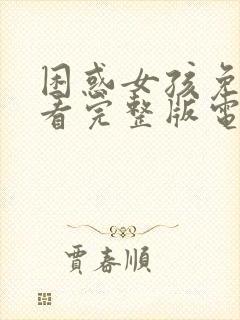 困惑女孩免
看完整版電
賈春順